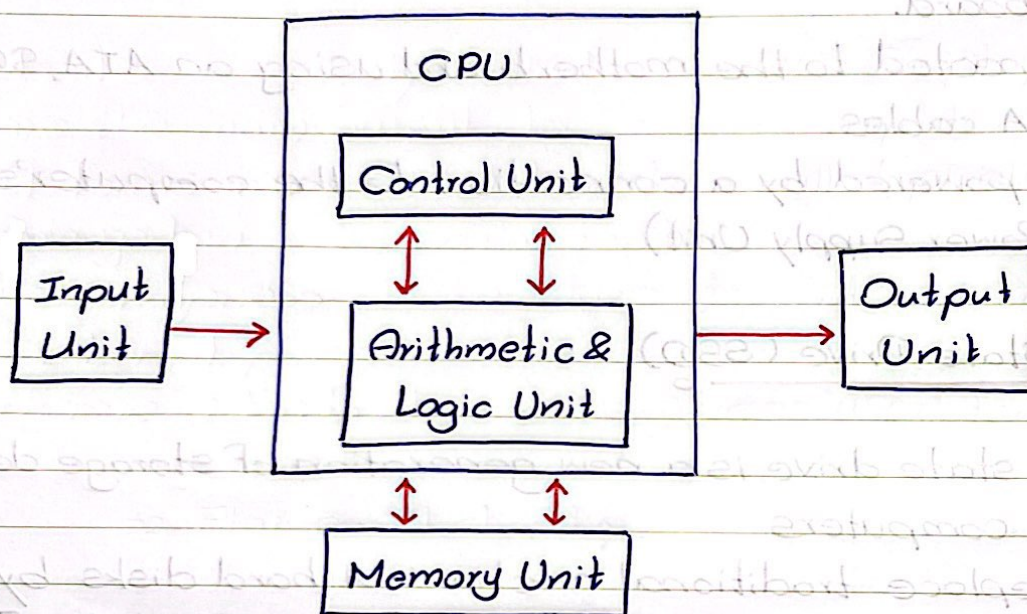 CPU
Control Unit
Input
Unit
Arithmetic &
Logic Unit
Output
Unit
Memory Unit